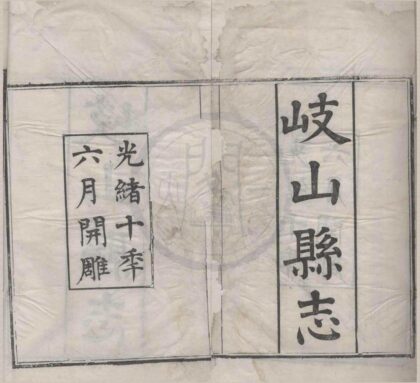 岐山縣志
光緒十秊
六月開雕